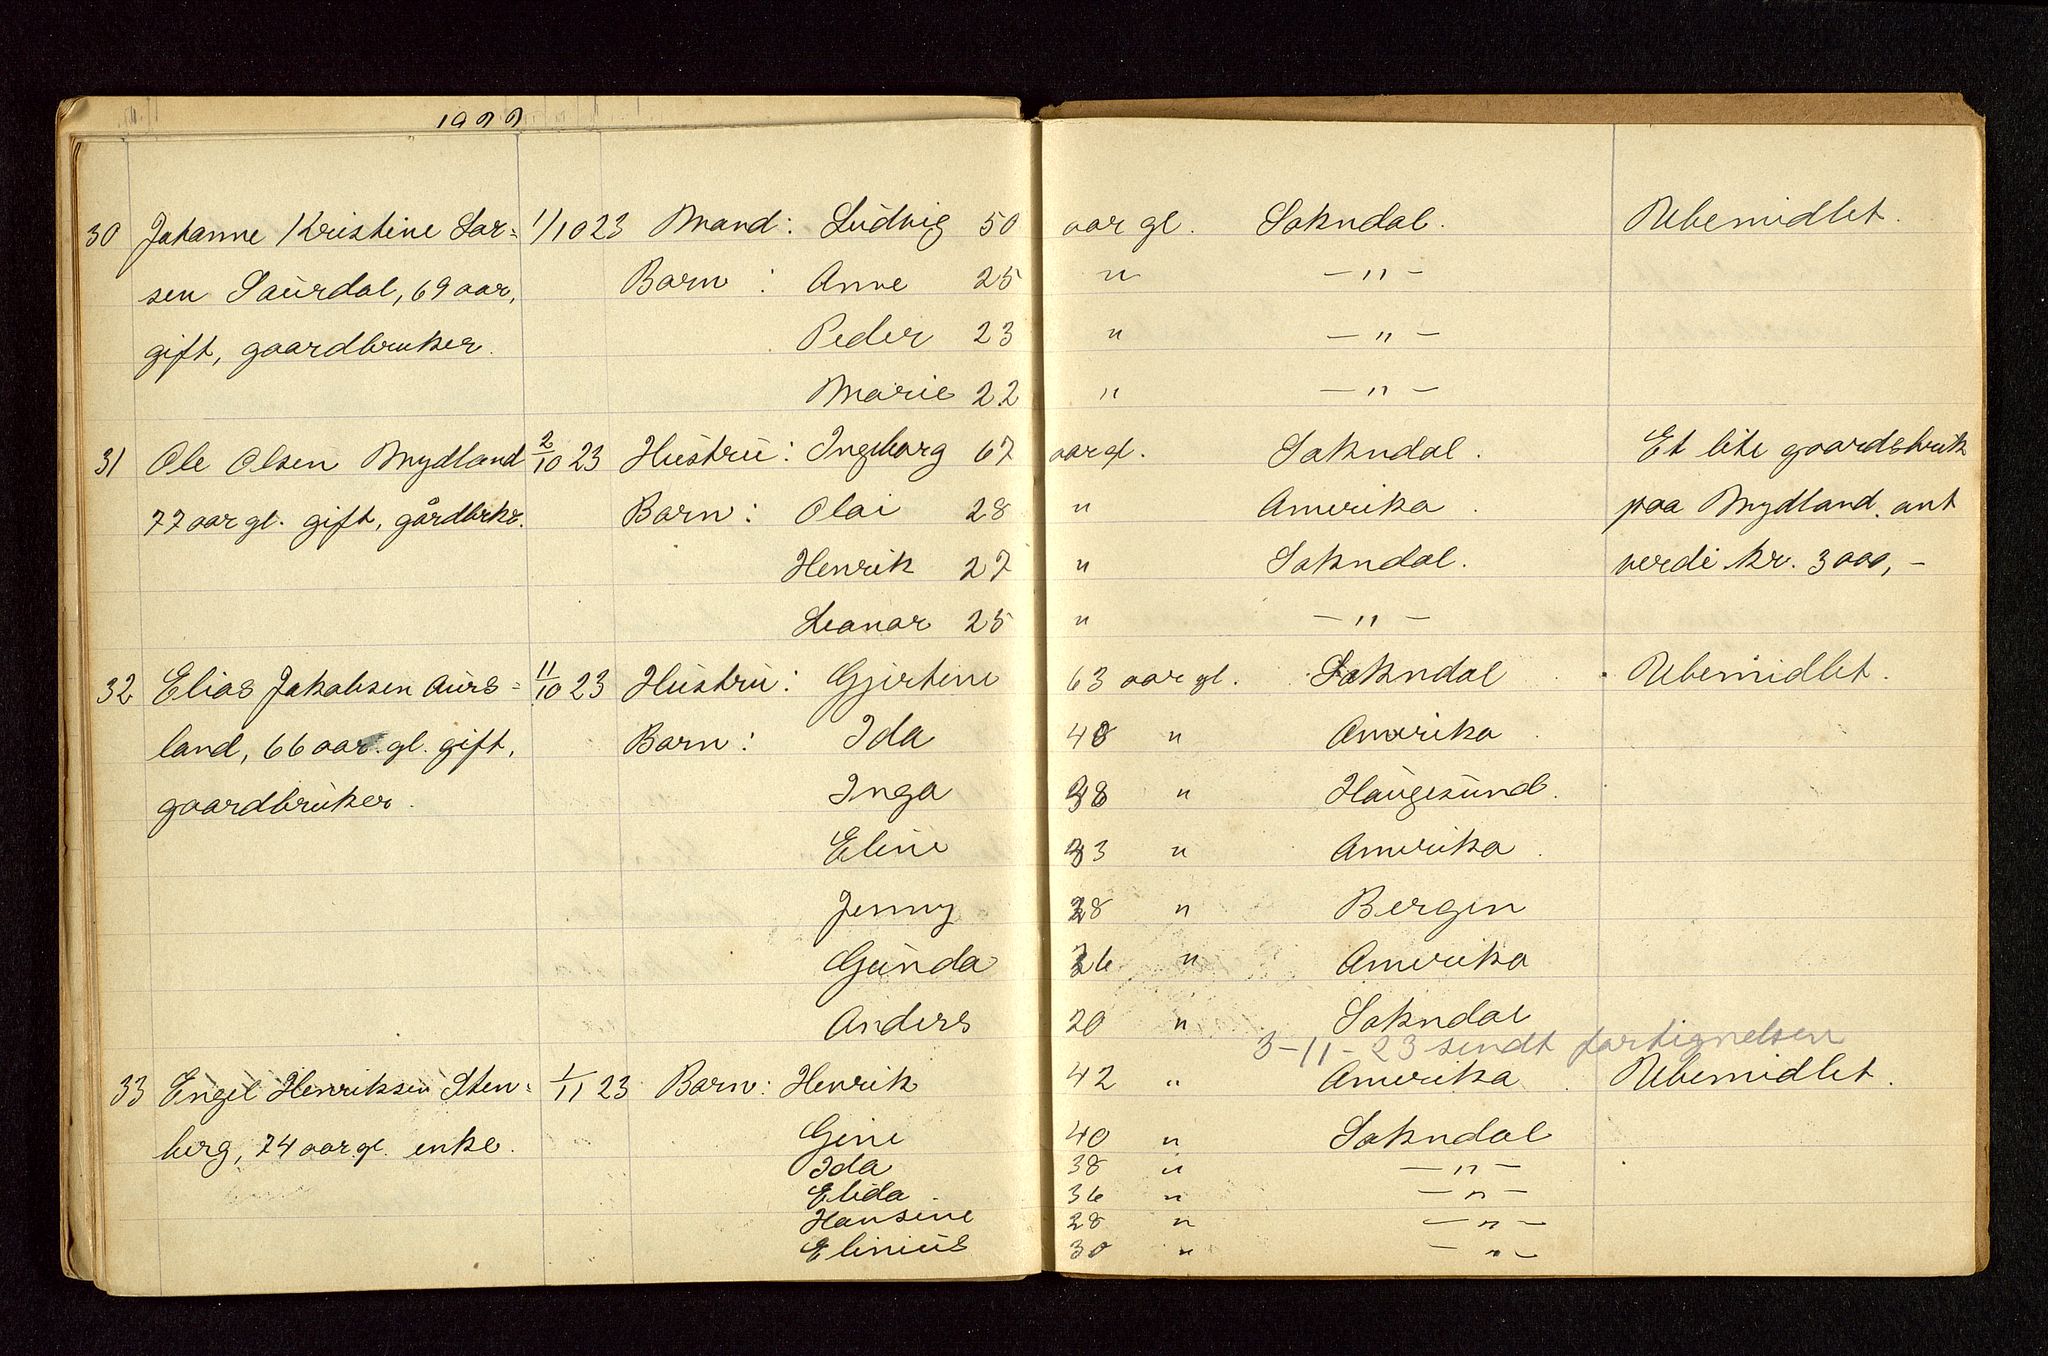 30 Johanne Kristine Lar= 1/10 23 Mand: Ludvig 50 aar gl. Sokndal. Ubemidlet.
sen Saurdal, 69 aar, Barn: Anne 25 " -"-
gift, gaardbruker. Peder 23 " -"-
Marie 22 " -"-
31 Ole Olsen Mydland 2/10 23 Hustru: Ingeborg 67 aar gl. Sokndal. Et lite gaardsbruk
77 aar gl. gift, gårdbrkr. Barn: Olai 28 " Amerika. paa Mydland. ant
Henrik 27 " Sokndal. verdi kr. 3000,-
Leonar 25 " -"-
32 Elias Jakobsen Aurs= 11/10 23 Hustru: Gjertine 63 aar gl. Sokndal. Ubemidlet.
land, 66 aar. gl. gift, Barn: Ida 48 " Amerika.
gaardbruker. Inga 38 " Haugesund.
Eline 33 " Amerika.
Jenny 28 " Bergen
Gunda 26 " Amerika
Anders 20 " Sokndal
3-11-23 sendt fortignelsen
33 Engel Henriksen Sten= 1/11 23 Barn: Henrik 42 " Amerika. Ubemidlet.
berg, 74 aar gl. enke. Gine 40 " Sokndal
Ida 38 " -"-
Elida. 36 " -"-
Hansine 28 " -"-
Elinius 30 " -"-